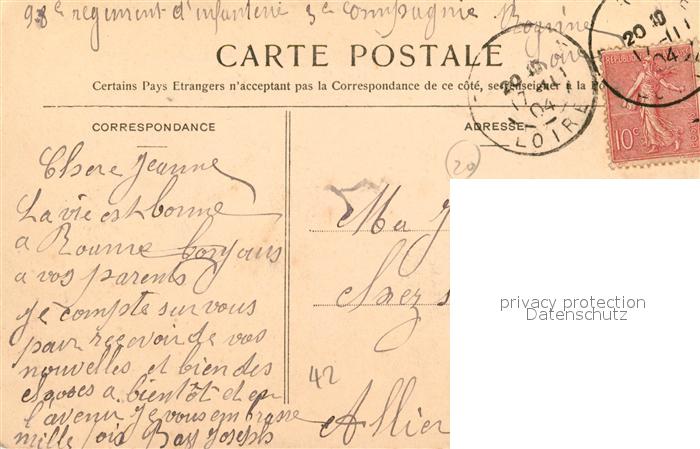 98e regiment d'infanterie 3e compagnie Roanne
Loire
CARTE POSTALE
Certains Pays Etrangers n'acceptent pas la Correspondance de ce côté, se renseigner à la Po
CORRESPONDANCE
ADRESSE
20
LOIRE
20 10
04
LOIRE
REPUBLIQUE
10c
Chere Jeanne
La vie est bonne
a Roanne bonjour
a vos parents
Je compte sur vous
pour recevoir de vos
nouvelles et bien des
choses a bientôt et en
l'avenir Je vous embrasse
mille fois Bay Joseph
42
Ma J
Chez
Allier
privacy protection
Datenschutz